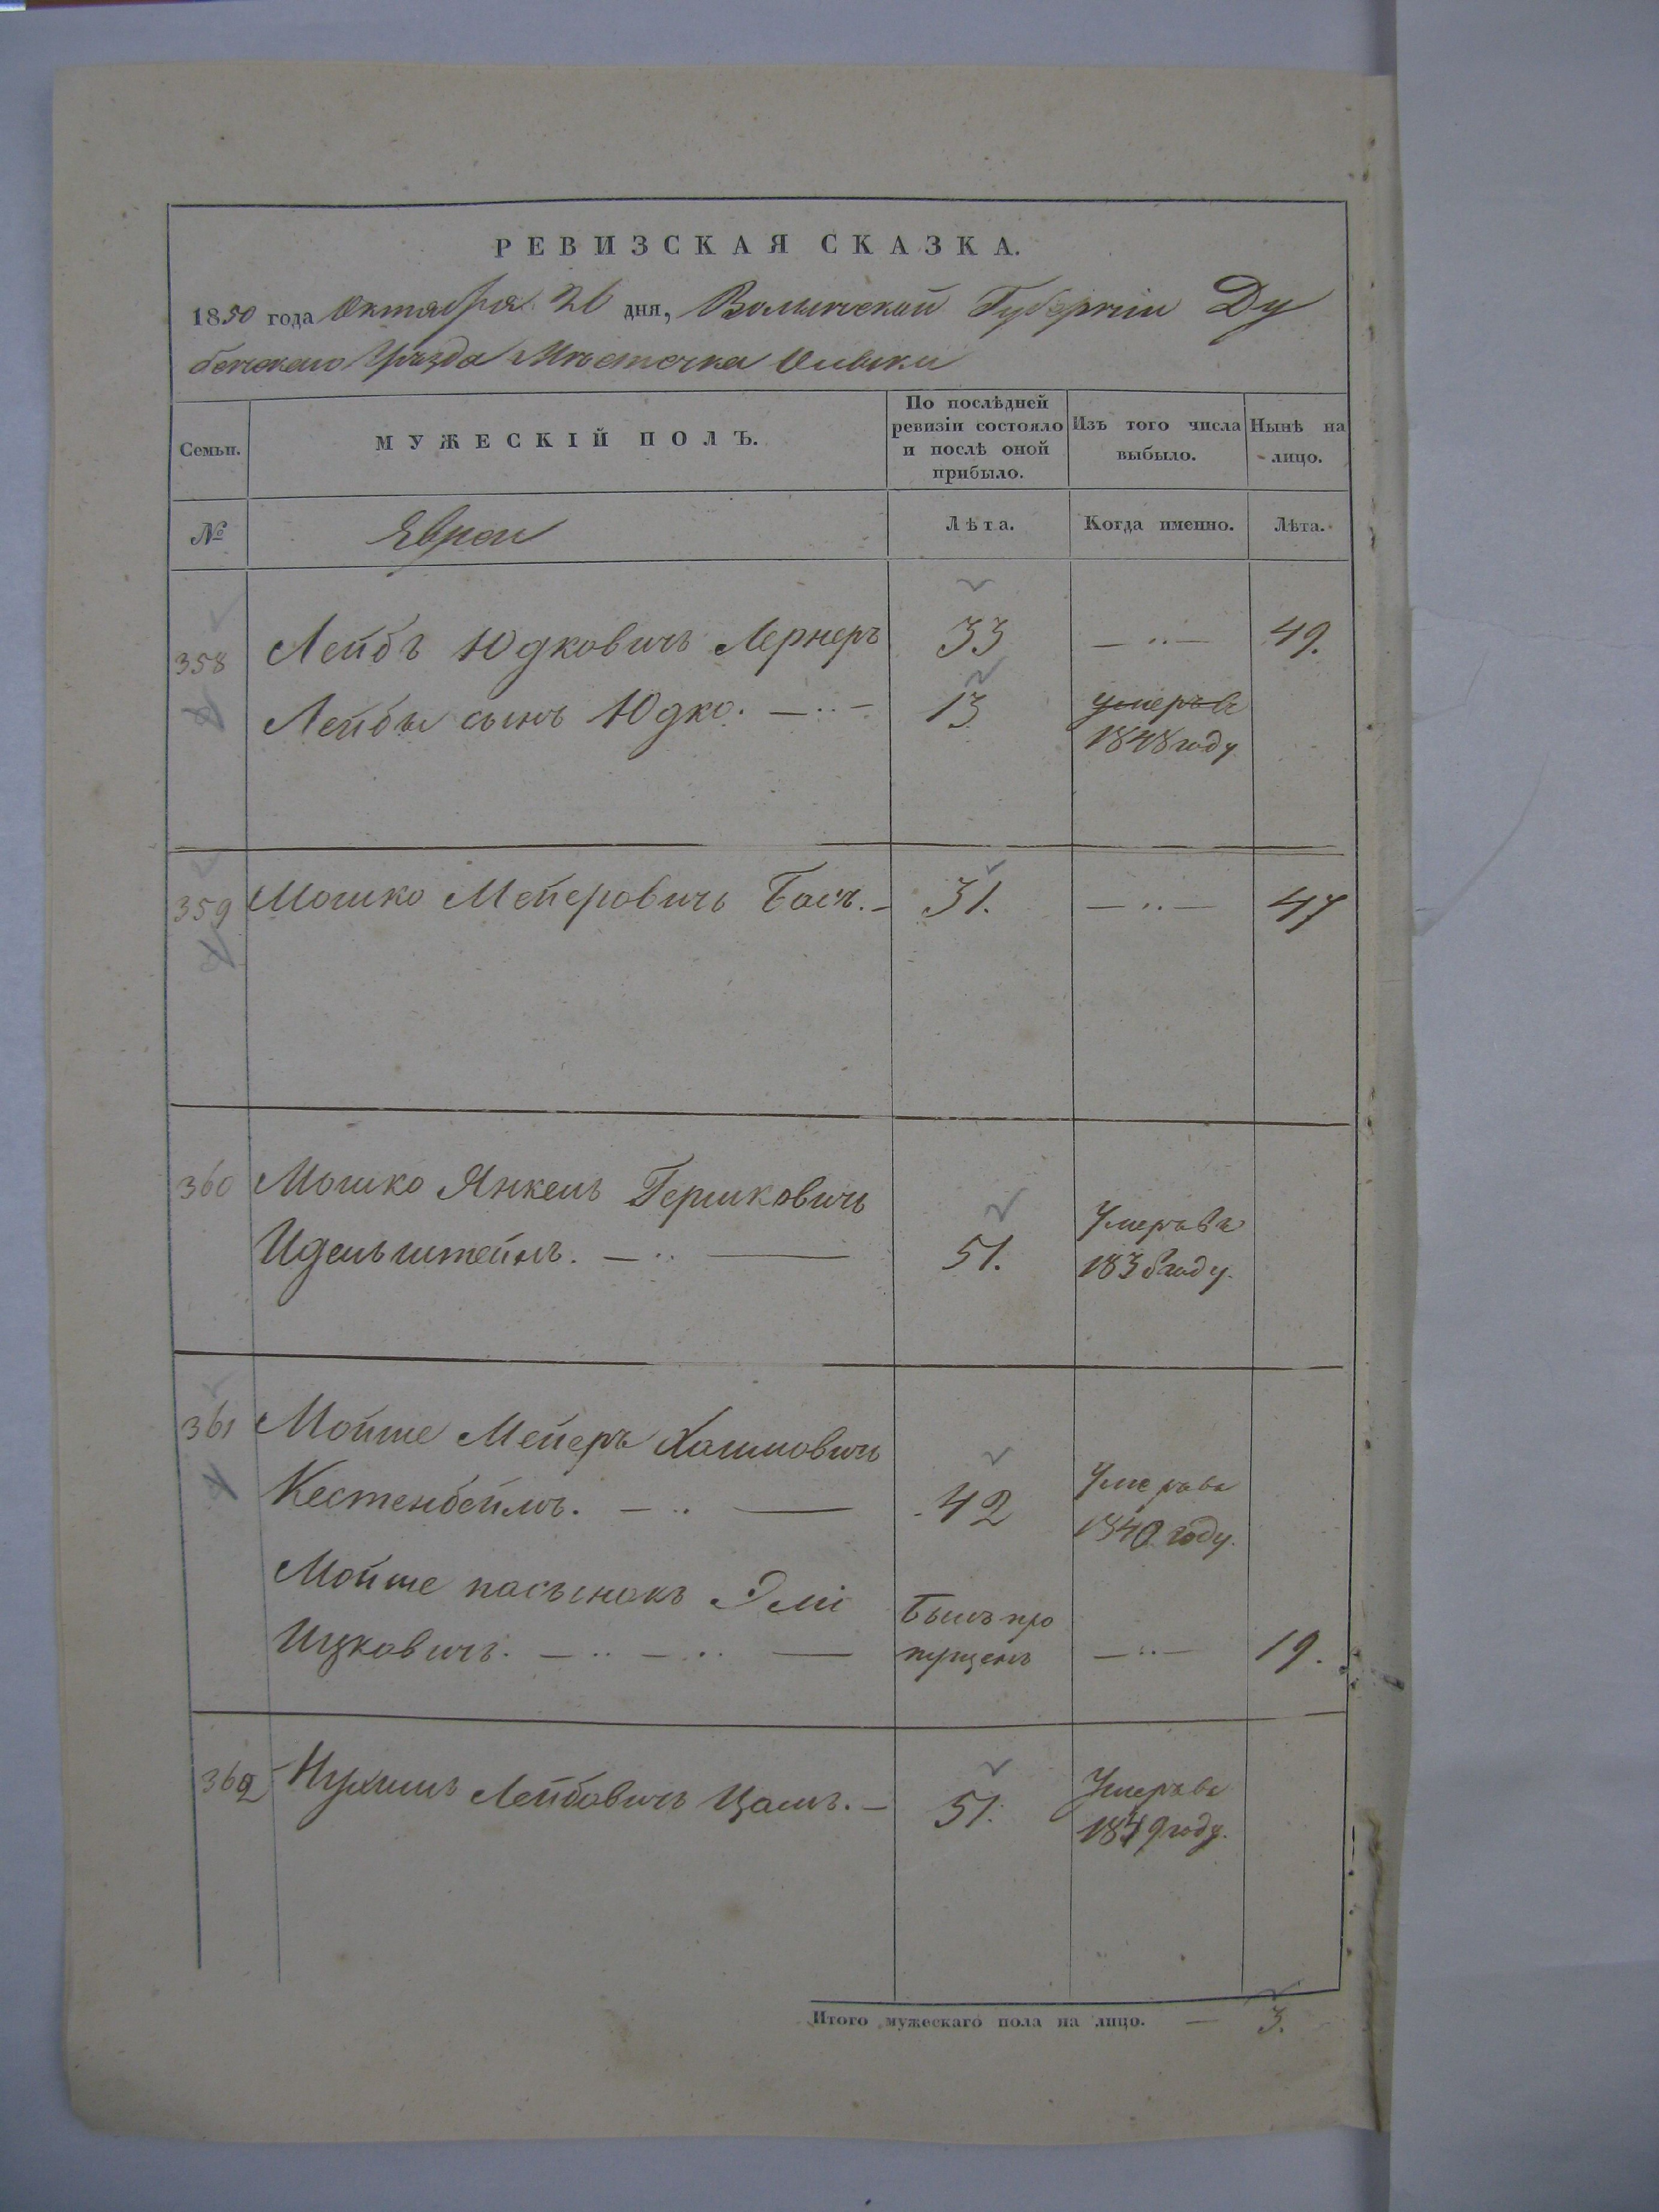 РЕВИЗСКАЯ СКАЗКА.
1850 года Октября 26 дня, Волынской Губерніи Ду
бенскаго Уѣзда Мѣстечка Олыки
Семьи.
МУЖЕСКІЙ ПОЛЪ.
По послѣдней ревизіи состояло и послѣ оной прибыло.
Изъ того числа выбыло.
Нынѣ на лицо.
№
Евреи
Лѣта.
Когда именно.
Лѣта.
358 Лейбъ Юдковичъ Лернеръ 33 — ·· — 49.
Лейбы сынъ Юдко. — ·· — 13 умеръ въ
1848 году
359 Мошко Мейеровичъ Басъ. — 31. — ·· — 47
360 Мошко Янкель Гершковичъ Умеръ въ
Идельштейнъ. — ·· — 51. 1836 году.
361 Мойше Мейеръ Хаимовичъ Умеръ въ
Кестенбеймъ. — ·· — 42 1840 году.
Мойше пасынокъ Эли Былъ про
Ицковичъ. — ·· — ·· — пущенъ — ·· — 19.
362 Нухимъ Лейбовичъ Цамъ. — 51. Умеръ въ
1849 году.
Итого мужескаго пола на лицо. — 3.